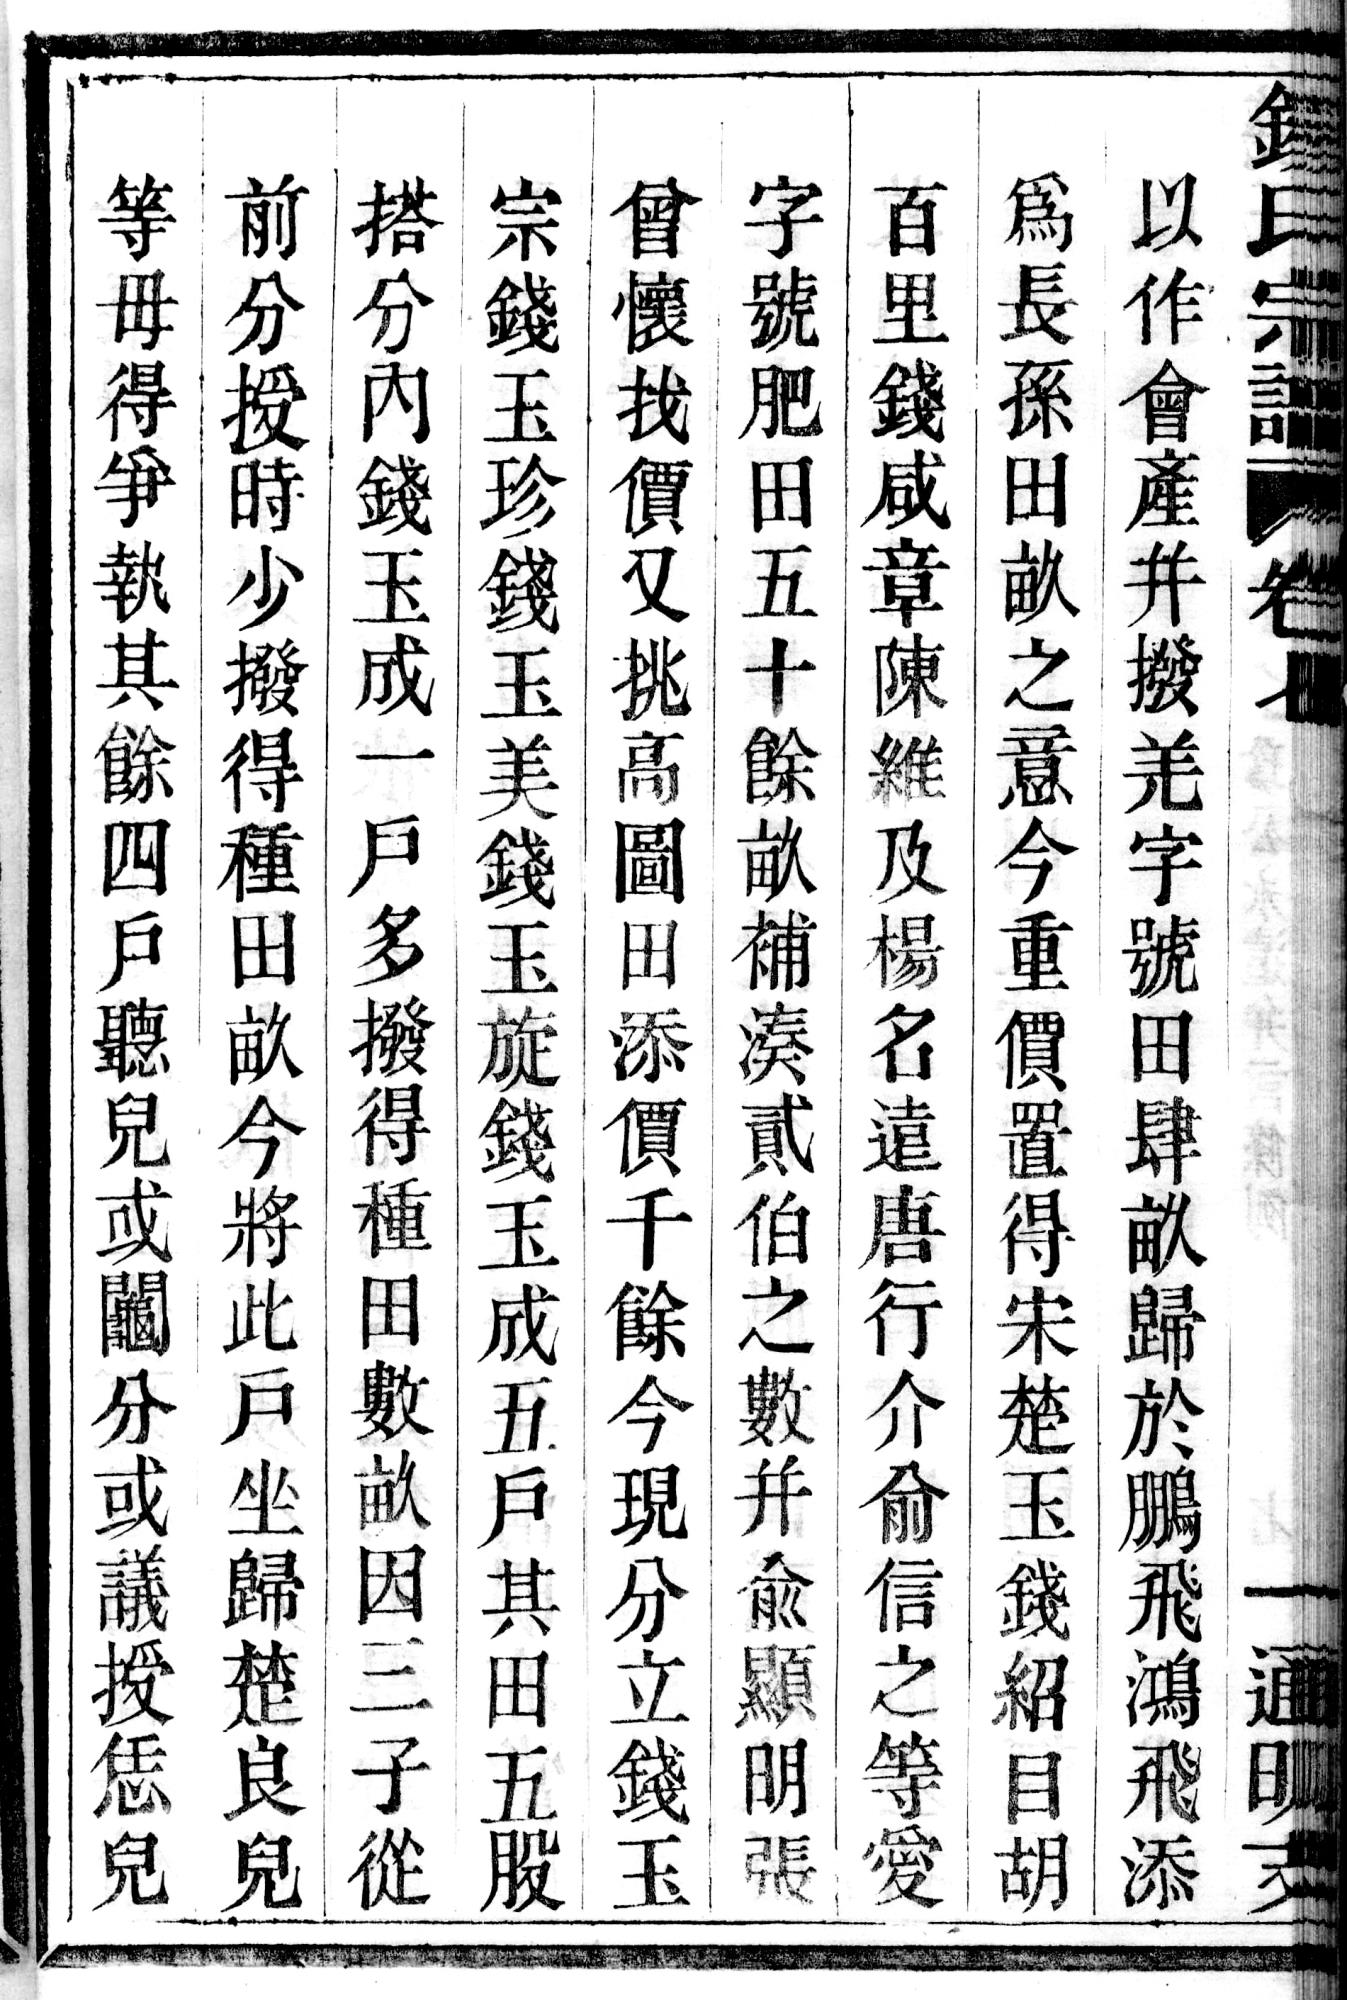 錢氏宗譜 卷 一 通明支
以作會產并撥羌字號田肆畝歸於鵬飛鴻飛添
為長孫田畝之意今重價置得宋楚玉錢紹目胡
百里錢咸章陳維及楊名遠唐行介俞信之等愛
字號肥田五十餘畝補湊貳伯之數并俞顯明張
曾懷找價又挑高圖田添價千餘今現分立錢玉
宗錢玉珍錢玉美錢玉旋錢玉成五戶其田五股
搭分內錢玉成一戶多撥得種田數畝因三子從
前分授時少撥得種田畝今將此戶坐歸楚良兒
等毋得爭執其餘四戶聽兒或鬮分或議授恁兒